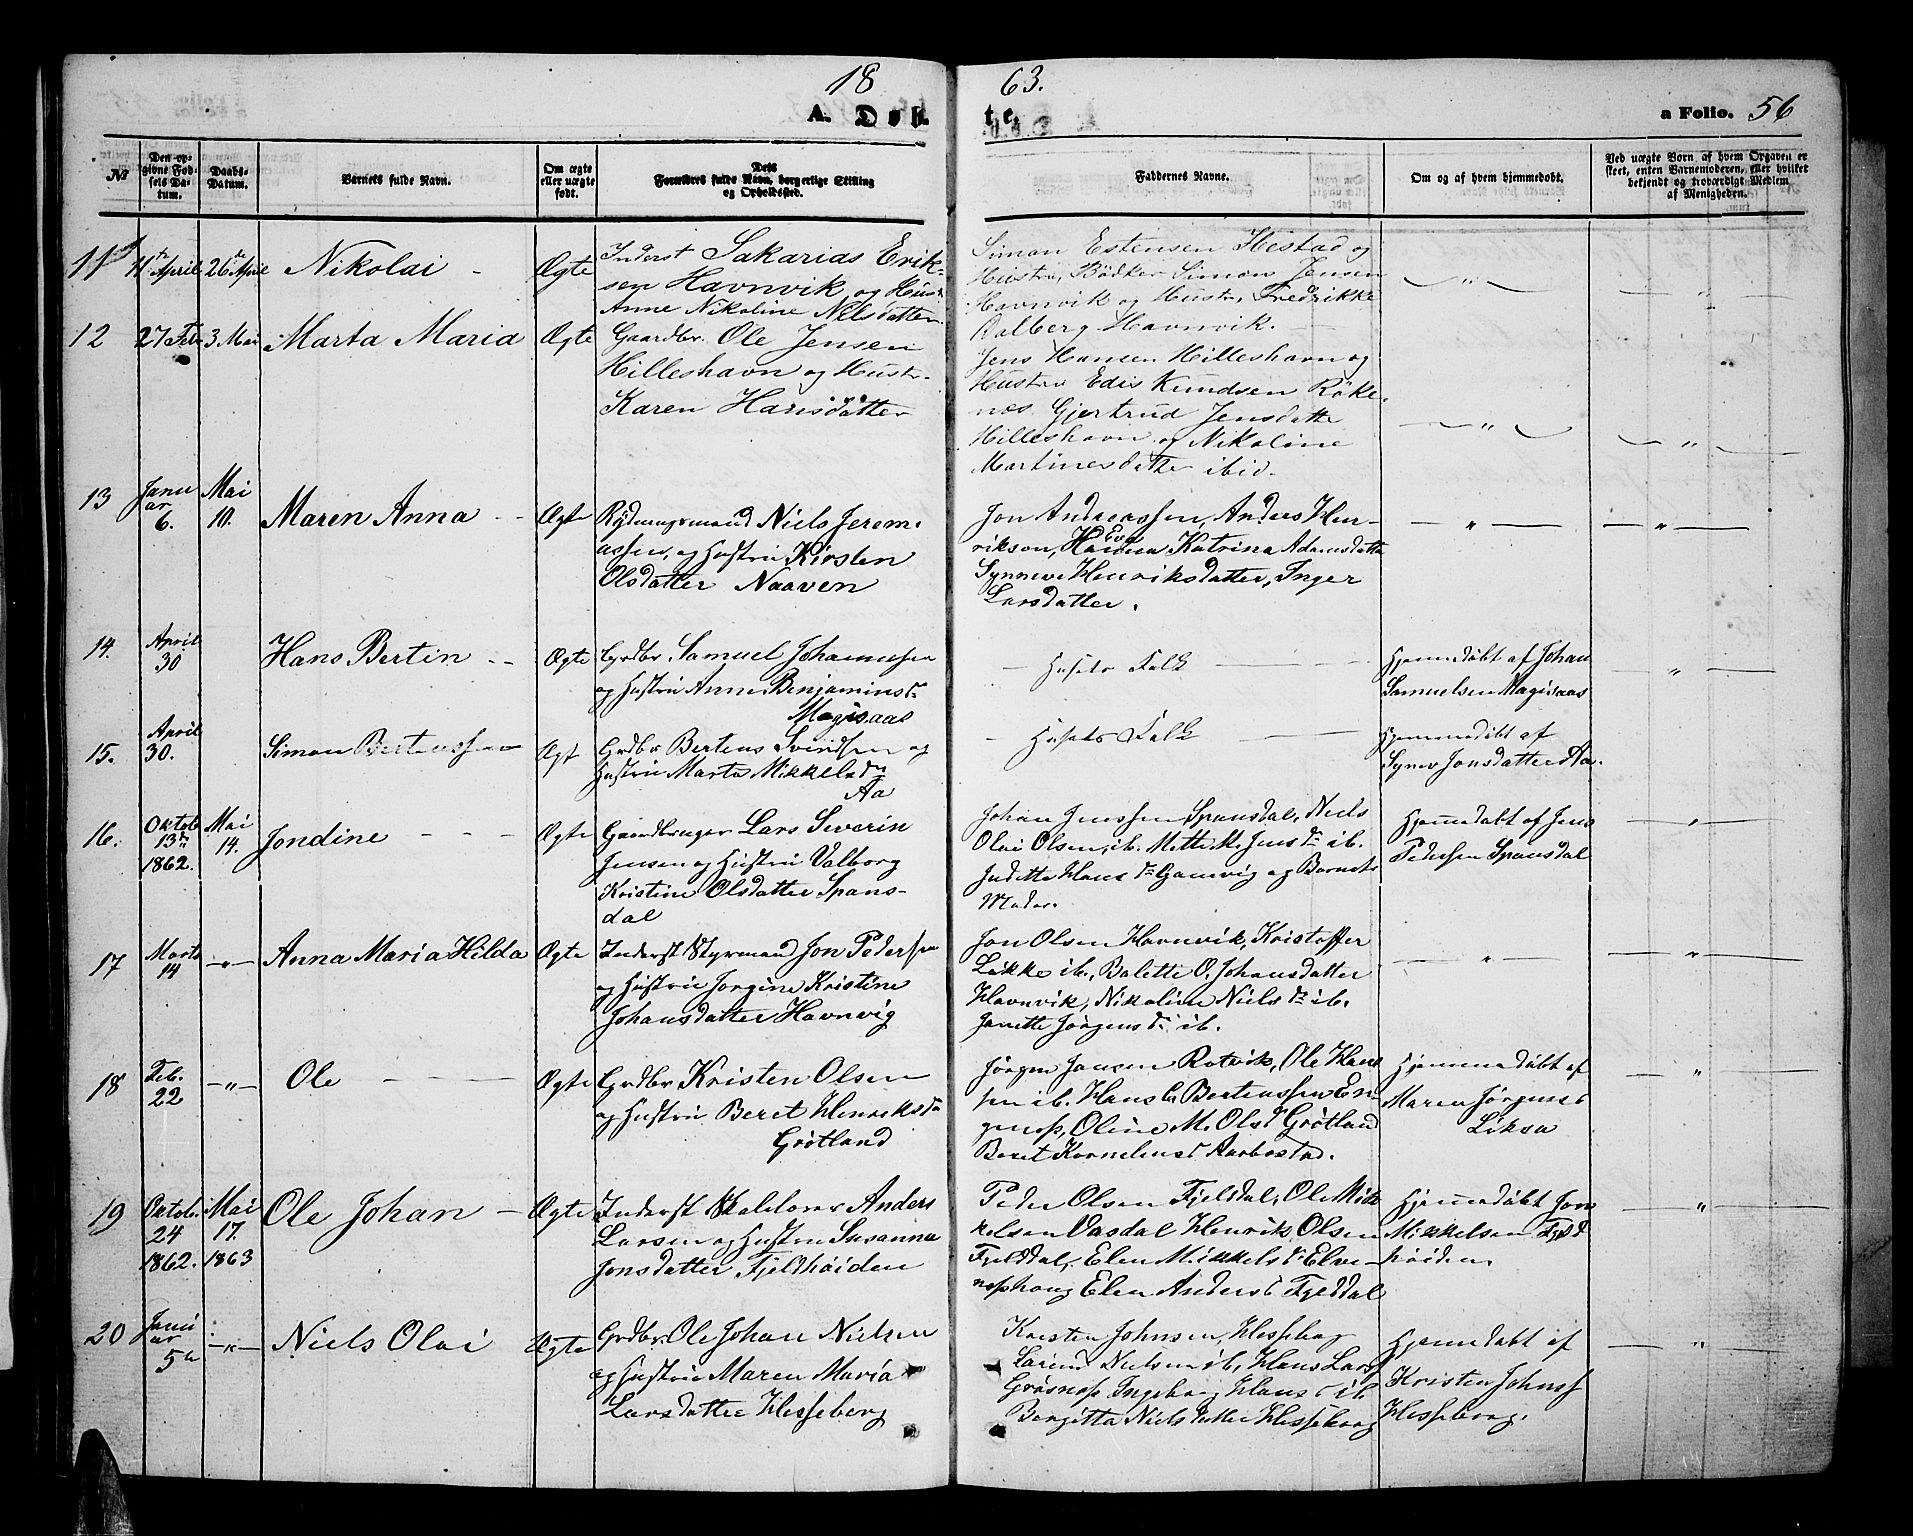 18 63.
A. Døb te. a Folio. 56
No
Den opgivne Fødsels Datum.
Daabs-Datum.
Barnets fulde Navn.
Om ægte eller uægte født.
Dets Forældres fulde Navn, borgerlige Stilling og Opholdssted.
Faddernes Navne.
Om og af hvem hjemmedøbt.
Ved uægte Børn af hvem Opgaven er skeet, enten Barnemoderen, eller hvilket bekjendt og troværdigt Medlem af Menigheden.
11 11te April 26de April Nikolai - Ægte
Inderst Sakarias Erik-
sen Havnvik og Hustr
Anne Nikoline Nilsdatter
Simon Estensen Hestad og
Hustru, Bødker Simon Jensen
Havnvik og Hustr. Fredrikke
Dalberg Havnvik.
12 27 Feb 3 Mai Marta Maria Ægte
Gaardbr. Ole Jensen
Hilleshavn og Hustr.
Karen Hansdatter
Jens Hansen Hilleshavn og
Hustru Edis Knudsen Røke-
næs Gjertrud Jensdatte
Hilleshavn og Nikoline
Martinesdatter ibid.
13 Januar 6. Mai 10. Maren Anna - - Ægte
Rydningsmand Niels Jerem-
iassen, og Hustru Kirsten
Olsdatter Naaven
Jon Andreassen, Anders Hen-
rikson, Eva Katrina Adamsdatte
Synneve Henriksdatter, Inger
Larsdatter.
14. April 30 Hans Bertin - - Ægte
Grdbr. Samuel Johannesen
og Hustru Anne Benjamins dr
Magisaas
- Husets Folk -
Hjemmedøbt af Johan
Samuelsen Magisaas
15. April 30. Simon Bertenssen Ægt
Grdbr Bertens Svendsen og
Hustru Marta Mikkels dr
Aa
- Husets Folk -
Hjemmedøbt af
Synev Jonsdatter Aa.
16. Oktob 13de 1862. Mai 14. Jondine - - - Ægte
Gaardbruger Lars Severin
Jensen og Hustru Valborg
Kristine Olsdatter Spans-
dal
Johan Jenssen Spansdal, Niels
Olai Olsen, ib. Mette M. Jens dr ib.
Juditte Hans dr Gamvig og Barnets
Moder.
Hjemmedøbt af Jens
Pedersen Spansdal
17 Marts 14 -"- Anna Maria Hilda Ægte
Inderst Styrmand Jon Pedersen
og Hustru Jorgine Kristine
Johansdatter Havnvig
Jon Olsen Havnvik, Kristoffer
Løkke ib., Balette O. Johansdatter
Havnvik, Nikoline Niels dr ib.
Janette Jørgens dr ib.
18 Feb. 22 -"- Ole - Ægte
Grdbr Kristen Olsen
og Hustru Beret Henriks dr
Grøtland
Jørgen Jansen Rotvik, Ole Han-
sen ib. Hans C. Bertenssen En-
genæs, Oline M. Ols d Grøtland
Beret Kornelius d Aarbostad.
Hjemmedøbt af
Maren Jørgens d
Liksa
19 Oktob. 24 1862. Mai 17. 1863 Ole Johan - Ægte
Inderst Skoleholder Anders
Larsen og Hustru Susanna
Jonsdatter Fjeldhøiden
Peder Olsen Fjelsdal, Ole Mik-
kelsen Vasdal Henrik Olsen
Fjelddal, Elen Mikkels d Elve-
næshaug Elen Anders d Fjeldal
Hjemmedøbt Jon
Mikkelsen Fjeld
høiden.
20 Januar 5te -"- Niels Olai Ægte
Grdbr. Ole Johan Nielsen
og Hustru Maren Maria
Larsdatter Hesseberg
Kristen Johnsen, Hesseberg
Larine Nielsen ib, Hans Lars
Grøsnæs Ingeborg Hans d ib.
Bergitta Nielsdatter Hesseberg
Hjemmedøbt af
Kristen Johns
Hesseberg.